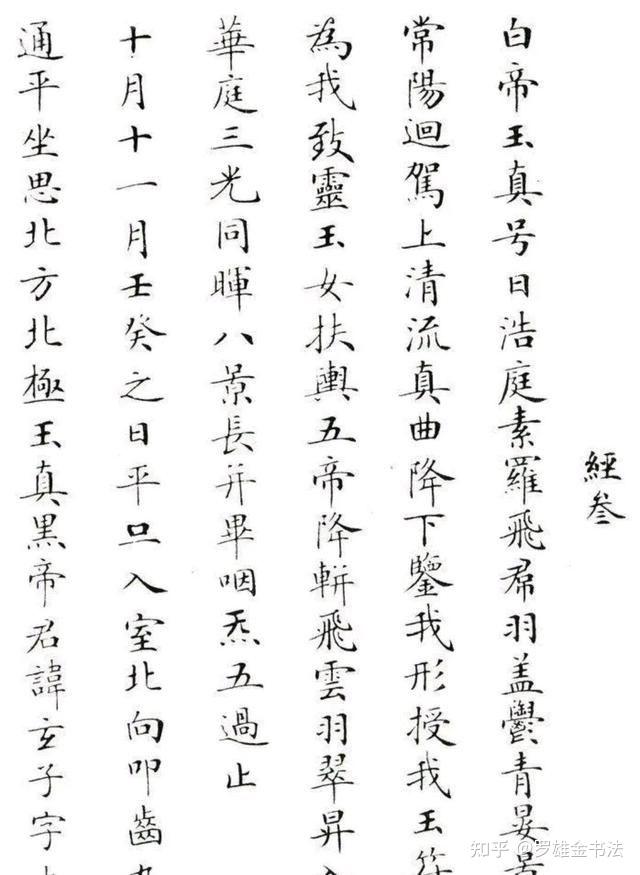 經叁
白帝玉真号曰浩庭素羅飛帬羽盖鬱青晏景
常陽迴駕上清流真曲降下鑒我形授我玉符
為我致靈玉女扶輿五帝降軿飛雲羽翠昇
華庭三光同暉八景長并畢咽炁五過止
十月十一月壬癸之日平旦入室北向叩齒
通平坐思北方北極玉真黑帝君諱玄子字
知乎 @罗雄金书法